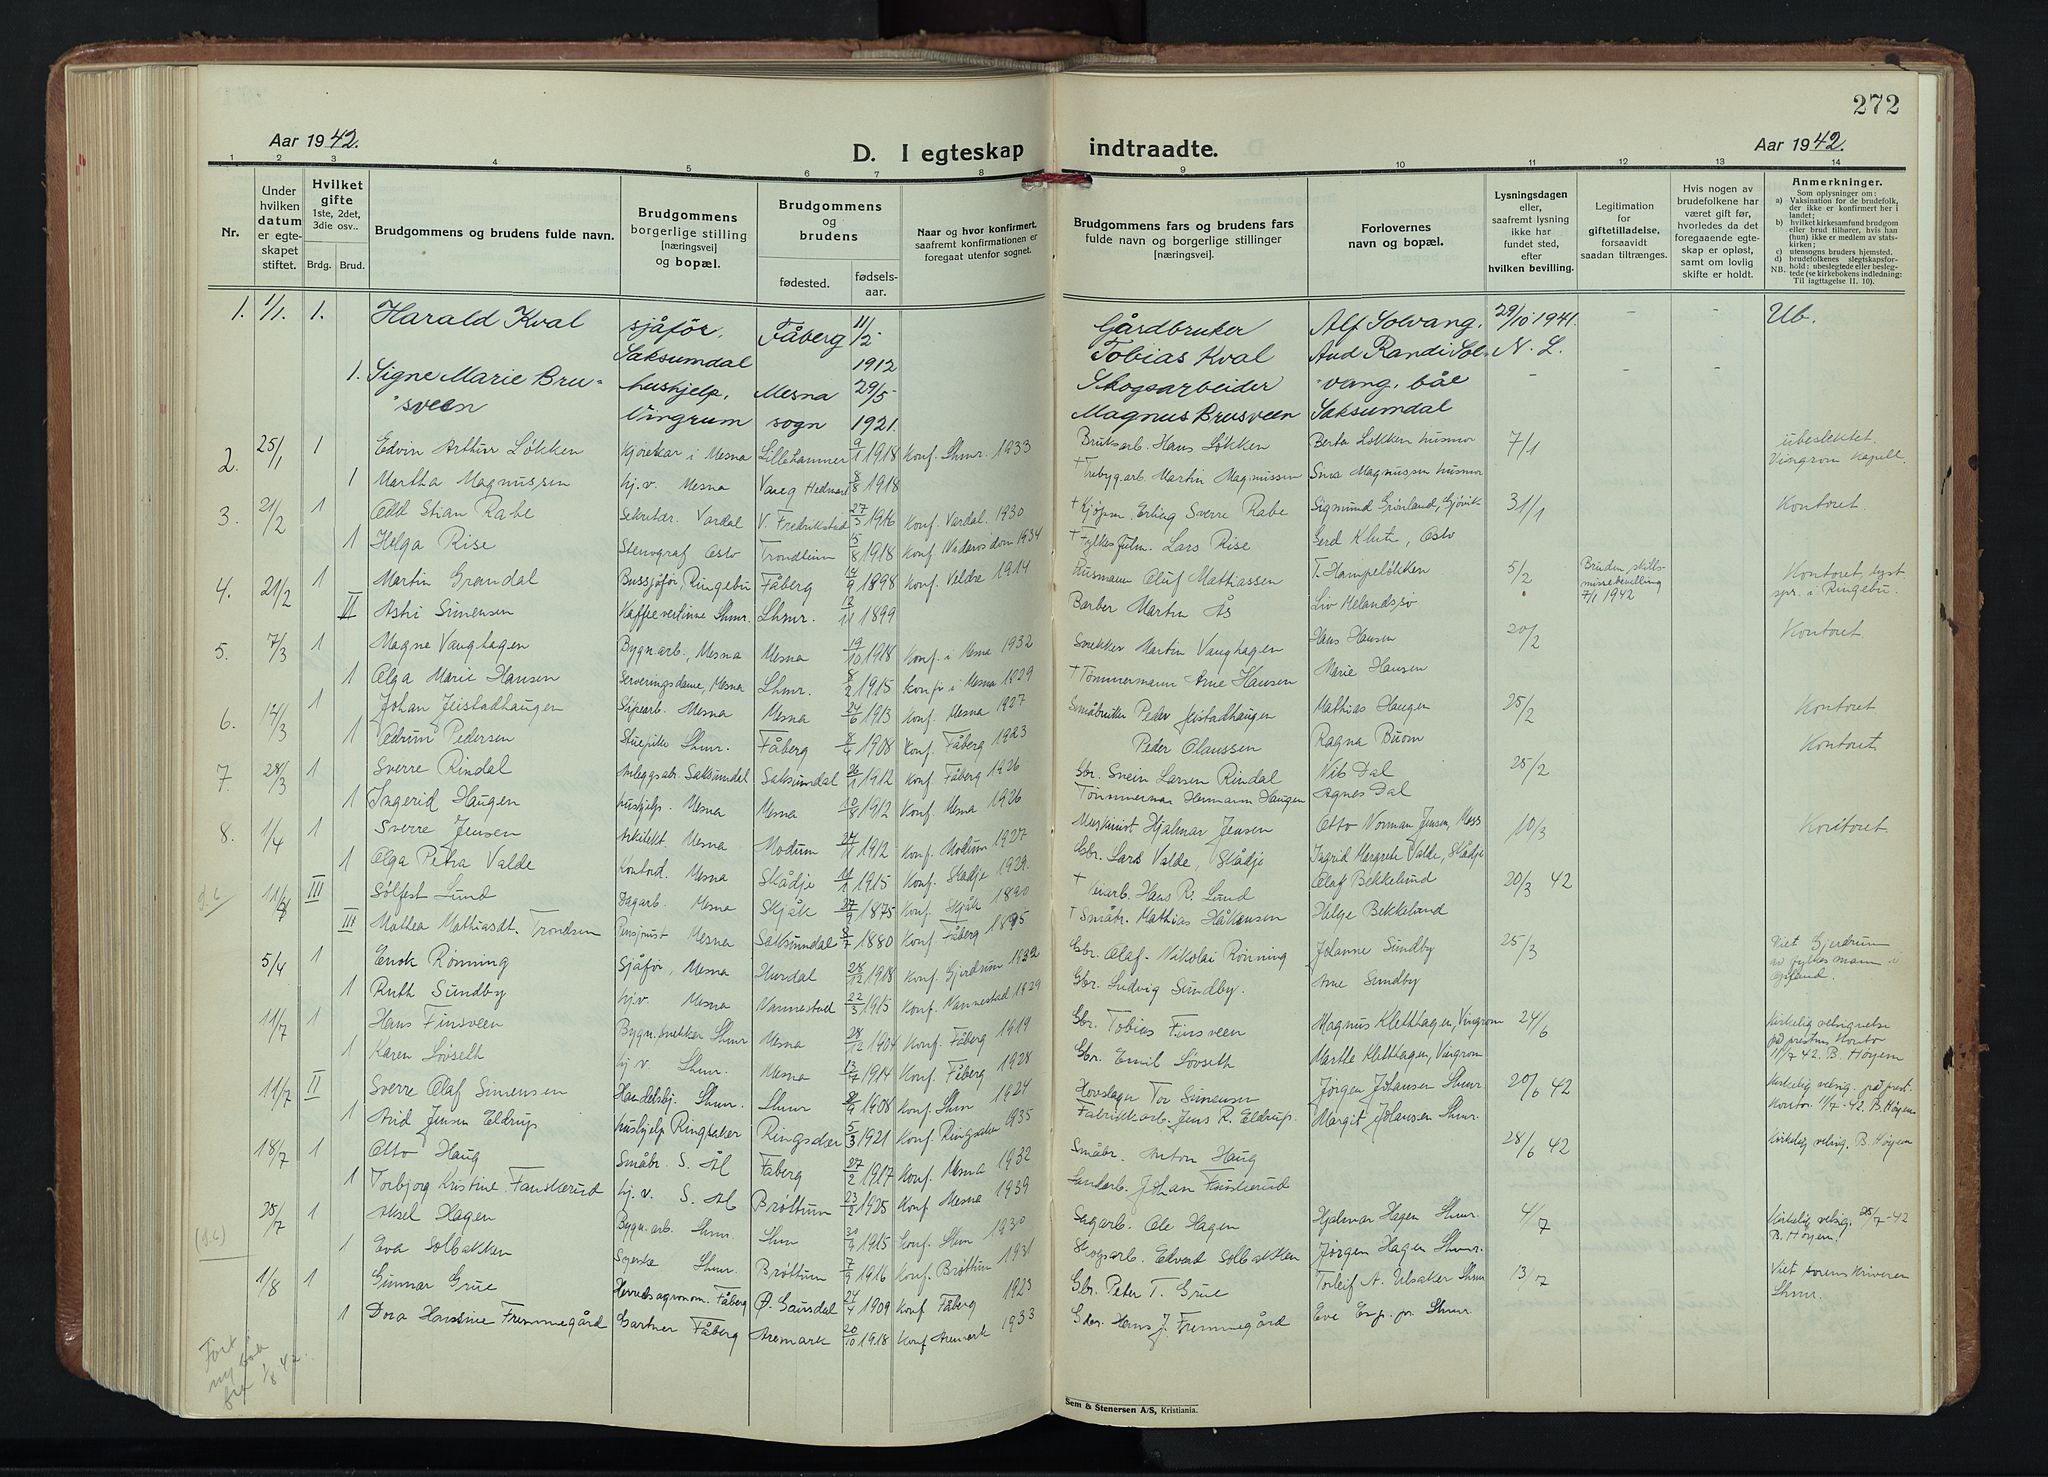 272
Aar 1942.
D. I egteskap indtraadte.
Aar 1942.
1 2 3 4 5 6 7 8 9 10 11 12 13 14
Nr.
Under hvilken datum er egteskapet stiftet.
Hvilket gifte 1ste, 2det, 3die osv..
Brdg. Brud.
Brudgommens og brudens fulde navn.
Brudgommens borgerlige stilling [næringsvei] og bopæl.
Brudgommens og brudens
fødested. fødsels-aar.
Naar og hvor konfirmert, saafremt konfirmationen er foregaat utenfor sognet.
Brudgommens fars og brudens fars fulde navn og borgerlige stillinger [næringsvei].
Forlovernes navn og bopæl.
Lysningsdagen eller, saafremt lysning ikke har fundet sted, efter hvilken bevilling.
Legitimation for giftetilladelse, forsaavidt saadan tiltrænges.
Hvis nogen av brudefolkene har været gift før, hvorledes da det foregaaende egteskap er opløst, samt om lovlig skifte er holdt.
Anmerkninger.
Som oplysninger om:
a) Vaksination for de brudefolk, der ikke er konfirmert her i landet;
b) hvilket kirkesamfund brudgom eller brud tilhører, hvis han (hun) ikke er medlem av statskirken;
c) utensogns bruders hjemsted.
d) brudefolkenes slegtskapsforhold: ubeslegtede eller beslegtede (se kirkebokens indledning: Til iagttagelse II. 10).
NB.
1. 1/1. 1. Harald Kval sjåfør, Fåberg 11/2 Gårdbruker Alf Solvang. 29/10 1941. - - Ub.
Saksumdal 1912 Tobias Kval Aud Randi Sol- N. L.
1. Signe Marie Bru- hushjelp, Mesna 29/5- Skogsarbeider vang, båe - -
sveen Vingrum sogn 1921. Magnus Brusveen Saksumdal
2. 25/1 1 Edvin Arthur Løkken Kjørekar i Mesna Lillehammer 9/1 1918 Konf. Lhmr. 1933 Bruksarb. Hans Løkken Berta Løkken husmor 7/1 ubeslektet. Vingrom Kapell.
1 Martha Magnussen hj.v. Mesna Vang Hedmark 8/8 1918 + Trebyg.arb. Martin Magnussen Magnussen husmor
3. 21/2 1 Odd Stian Rabe Sekretær. Vardal V. Fredrikstad 27/3 1916 Konf. Vardal. 1930 + Kjøpm. Erling Sverre Rabe Sigmund Grønland, Gjøvik 31/1 Kontoret.
1 Helga Rise Stenograf Oslo Trondheim 15/8 1918 Konf. Nidarosdom 1934 + Lars Rise Gerd Oslo
4. 21/2 1 Martin Grandal Bussjåfør, Ringebu Fåberg 4/9 1898 Konf. Veldre 1914 Husmann Oluf Mathiassen T. Hampeløkken 5/2 Bruden skilsmissebevilling 7/1 1942 Kontoret, lyst spr. i Ringebu.
II Astri Simensen Kaffevertinne Lhmr. Lhmr. 13/11 1899 Barber Martin Ås Liv Melandsjø
5. 7/3 1 Magne Vanghagen Bygn.arb., Mesna Mesna 19/10 1918 Konf. i Mesna 1932 Snekker Martin Vanghagen Hans Hansen 20/2 Kontoret.
1 Olga Marie Hansen Serveringsdame, Mesna Lhmr. 8/2 1915 Konf. i Mesna 1929 + Tømmermann Arne Hansen Marie Hansen
6. 14/3 1 Johan Jeistadhaugen Mesna Mesna 24/6 1913 Konf. Mesna 1927 Småbruker Peder Jeistadhaugen Mathias Haugen 25/2 Kontoret
1 Odrun Pedersen Stuepike Lhmr. Fåberg 1908 Konf. Fåberg 1923 Peder Olaussen Ragna Buom Kontoret
7. 28/3 1 Sverre Rindal Anleggsarb. Saksumdal Saksumdal 26/1 1912 Konf Fåberg 1926 Gbr. Svein Larsen Rindal Nils Dal 25/2
1 Ingerid Haugen hushjelp. Mesna Mesna 10/8 1912 Konf. Mesna 1926 Tømmerman Hermann Haugen Agnes Dal
8. 1/4 1 Sverre Jensen Arkitekt. Mesna Modum 27/11 1912 Konf. Modum 1927 Maskinist Hjalmar Jensen Otto Norman Jensen, Moss 10/3 Kontoret
1 Olga Petra Valde Kontord. Mesna Skådje 11/1 1915 Konf. Skådje 1929. Gbr. Lars Valde, Skådje Ingrid Margrete Valde, Skådje
11/8 III Sølfest Lund Mesna Skjåk 27/9 1875 Konf. Skjåk 1890 + Veiarb. Hans R. Lund Olaf Bekkelund 20/3 42
III Mathea Mathiasdt. Trondsen Pensjonist Mesna Saksumdal 8/7 1880 Konf Fåberg 1895 + Småbr. Mathias Håkensen Helge Bekkelund
5/4 1 Enok Rønning Sjåfør, Mesna Hurdal 28/12 1918 Konf Gjerdrum 1932 Gbr. Olaf Nikolai Rønning Johanne Sundby 25/3 Viet Gjerdrum av fylkesmann i Opland.
1 Ruth Sundby hj.v. Mesna Nannestad 22/3 1915 Konf. Nannestad 1929 Gbr. Ludvig Sundby. Arne Sundby
11/7 1 Hans Finsveen Bygn.snekker Lhmr Mesna 28/12 1904 Konf. Fåberg 1919 Gbr. Tobias Finsveen Magnus Kletthagen, Vingrom 24/6 Kirkelig velsignelse på prestens Kontor 11/7 42. B. Høyem
1 Karen Løvseth hj.v. Lhmr. Mesna 13/7 1914 Konf. Fåberg 1928 Gbr. Emil Løvseth Marthe Kletthagen, Vingrom
11/7 II Sverre Olaf Simensen Handelsbj. Lhmr. Lhmr 1908 Konf. Lhm 1924 Hovslager Tor Simensen Jørgen Johansen Lhmr. 20/6 42 Kirkelig velsig. på prest. Kontor. 11/7-42. B. Høyem
1 Arid Jensen Eldrup hushjelp Ringsaker Ringsaker 5/3 1921 Konf. Ringsaker 1935 Fabrikkarb. Jens R. Eldrup. Margit Johansen Lhmr.
18/7 1 Otto Haug Småbr. S. Ål Fåberg 27/2 1917 Konf. Mesna 1932 Småbr. Anton Haug 28/6 42 Kirkelig velsig. B. Høyem
1 Torbjørg Kristine Fanskerud hj.v. S. Ål Brøttum 23/8 1925 Konf. Mesna 1939 Johan Fanskerud
25/7 1 Aksel Hagen Bygn.arb. Lhmr. Lhm 30/9 1915 Konf. Lhm 1930 Sagarb. Ole Hagen Hjalmar Hagen Lhmr. 4/7 Kirkelig velsig. 25/7-42 B. Høyem
1 Eva Solbakken Syerske Lhmr. Brøttum 7/9 1916 Konf. Brøttum 1931 Skogsarb. Edvard Solbakken Jørgen Hagen Lhmr.
1/8 1 Gunnar Grue Herredsagronom. Fåberg Ø. Gausdal 24/4 1909 Konf Fåberg 1923 Gbr. Peter T. Grue Torleif A. Ulsaker Lhmr 13/7 Viet sorenskriveren Lhmr.
1 Dora Hansine Fremmegård Gartner Fåberg Aremark 20/10 1918 Konf Aremark 1933 Gbr. Hans J. Fremmegård Lhmr.
Ført ny bok fra 1/8 42.
Sem & Stenersen A/S, Kristiania.